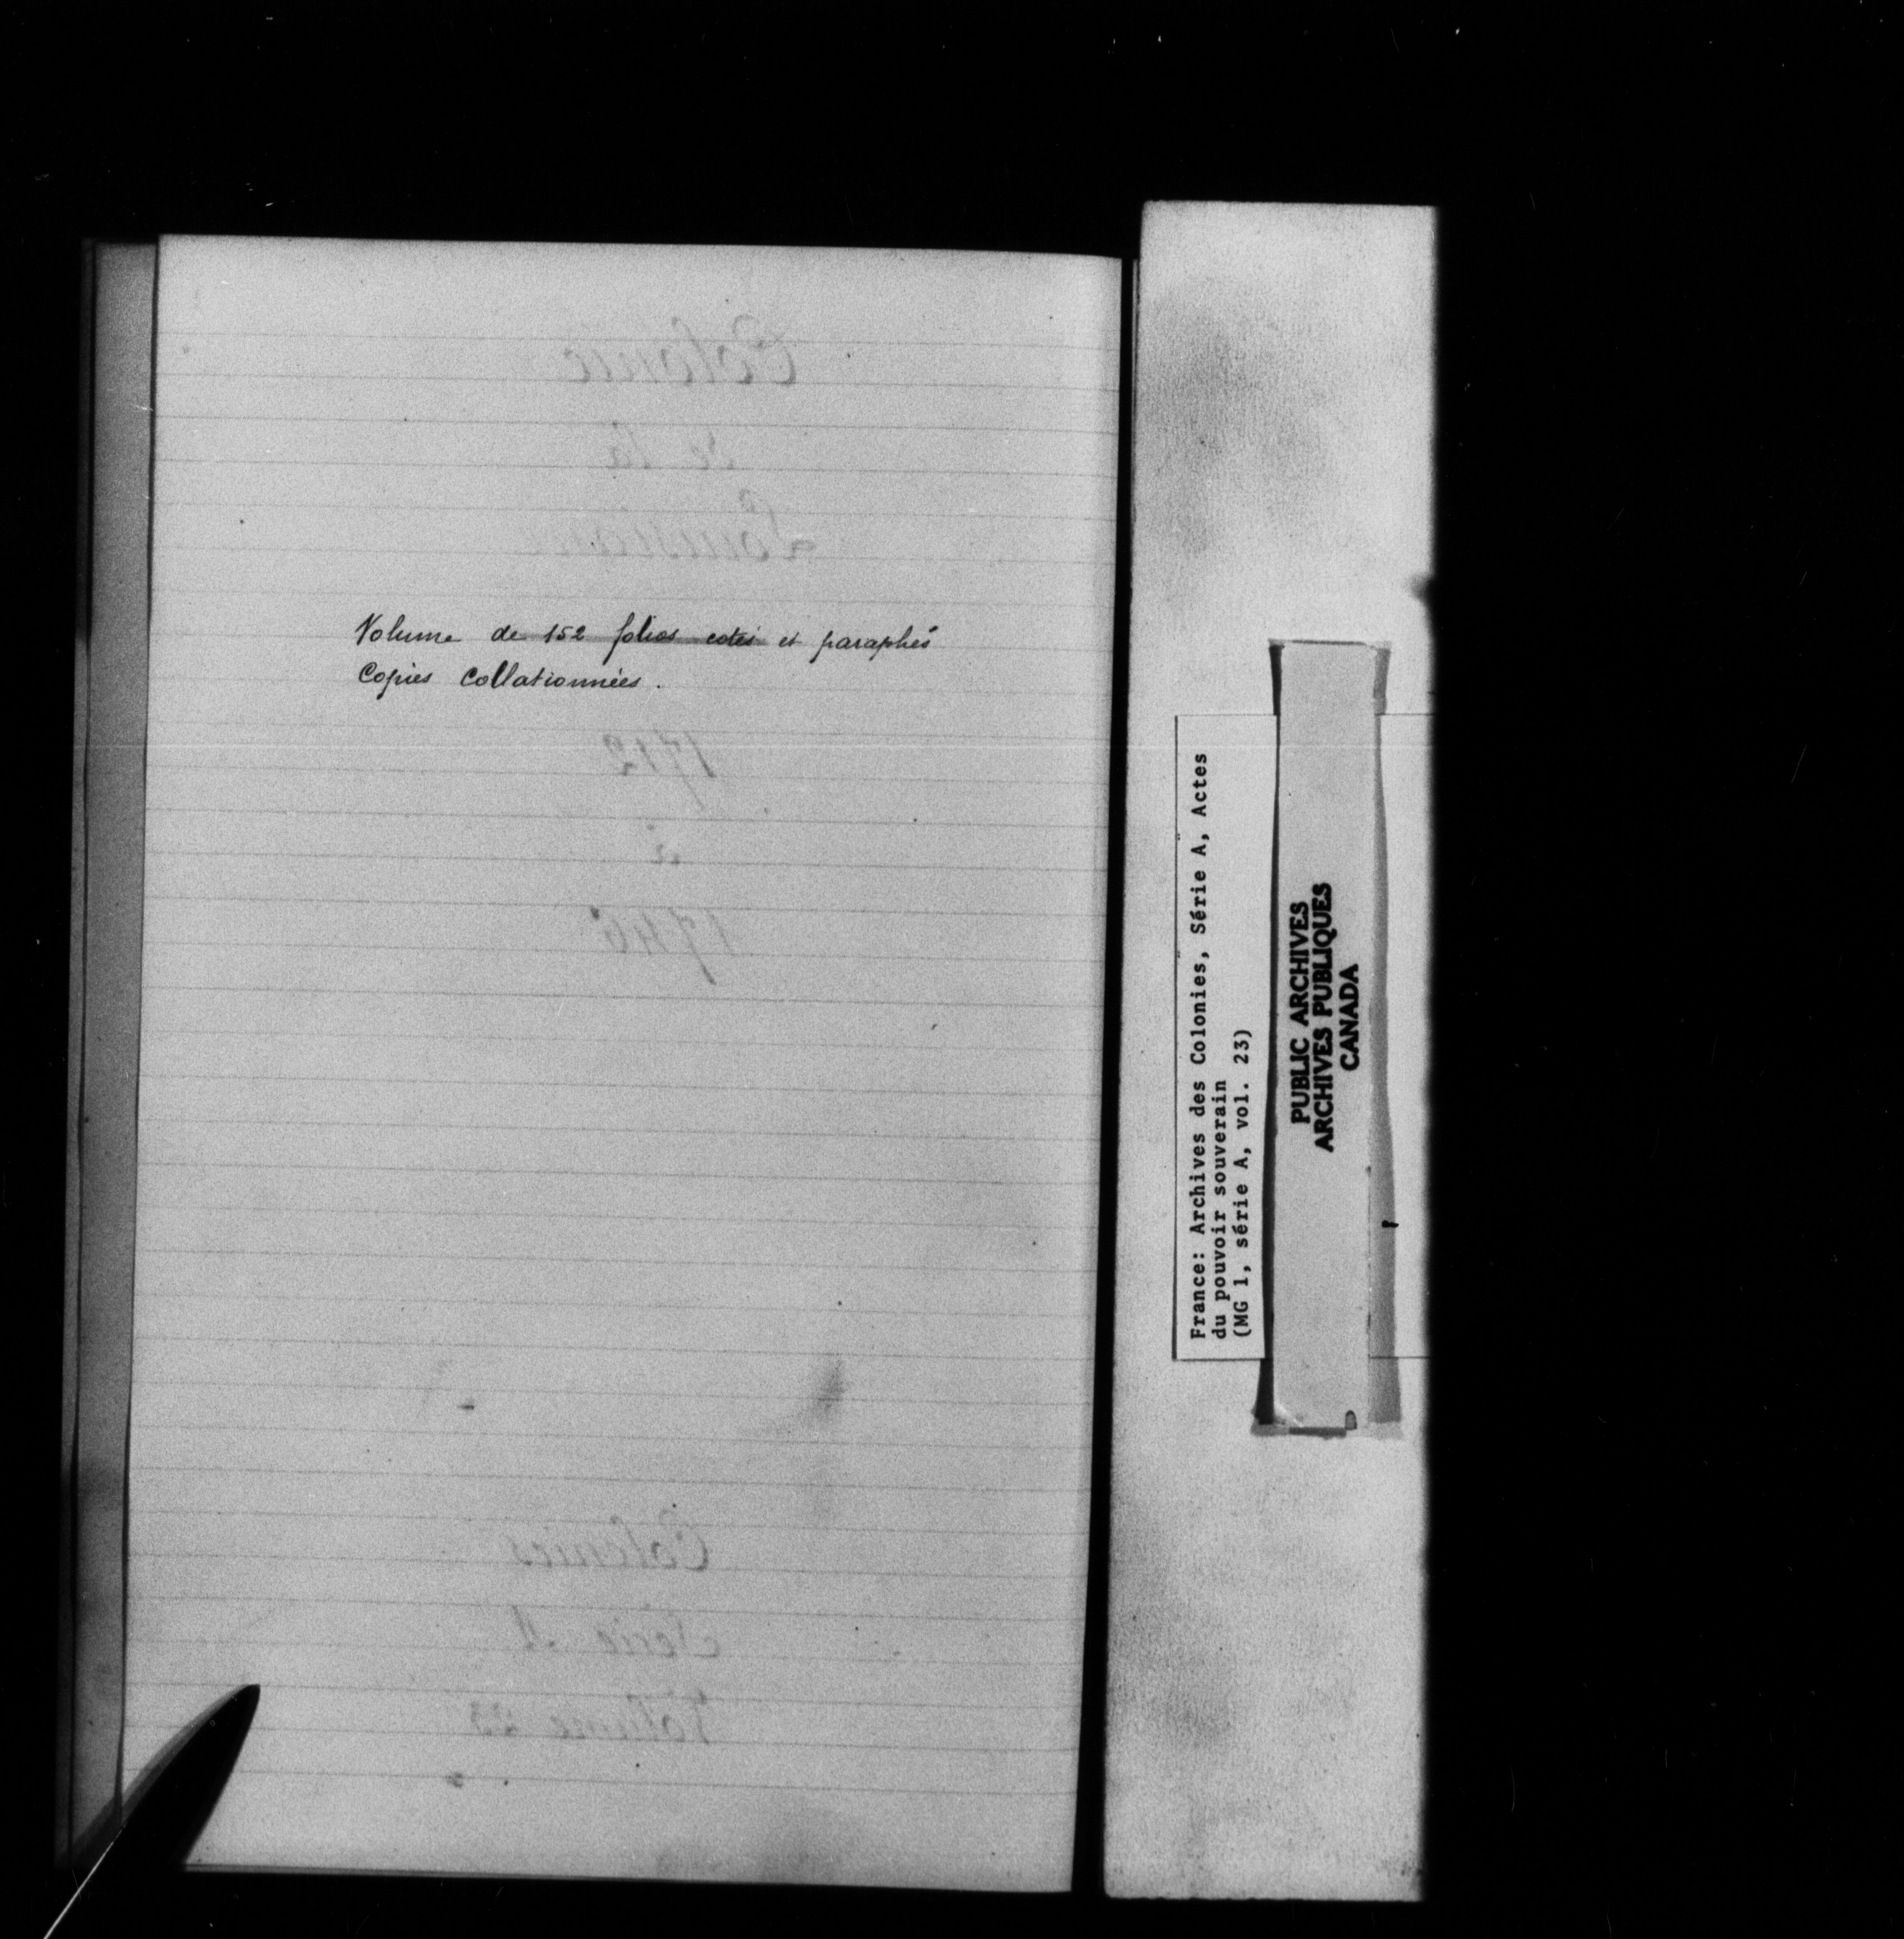 Volume de 152 folios cotés et paraphés
Copies Collationnées.
France: Archives des Colonies, Série A, Actes
du pouvoir souverain
(MG 1, série A, vol. 23)
PUBLIC ARCHIVES
ARCHIVES PUBLIQUES
CANADA
Colonie
de la
Louisiane
1712
à
1746
Colonies
Série A
Volume 23